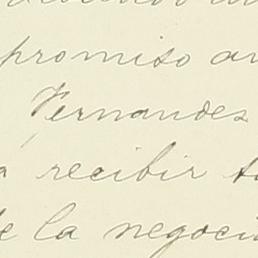 promiso an
Fernandes
a recibir t
de la negoci